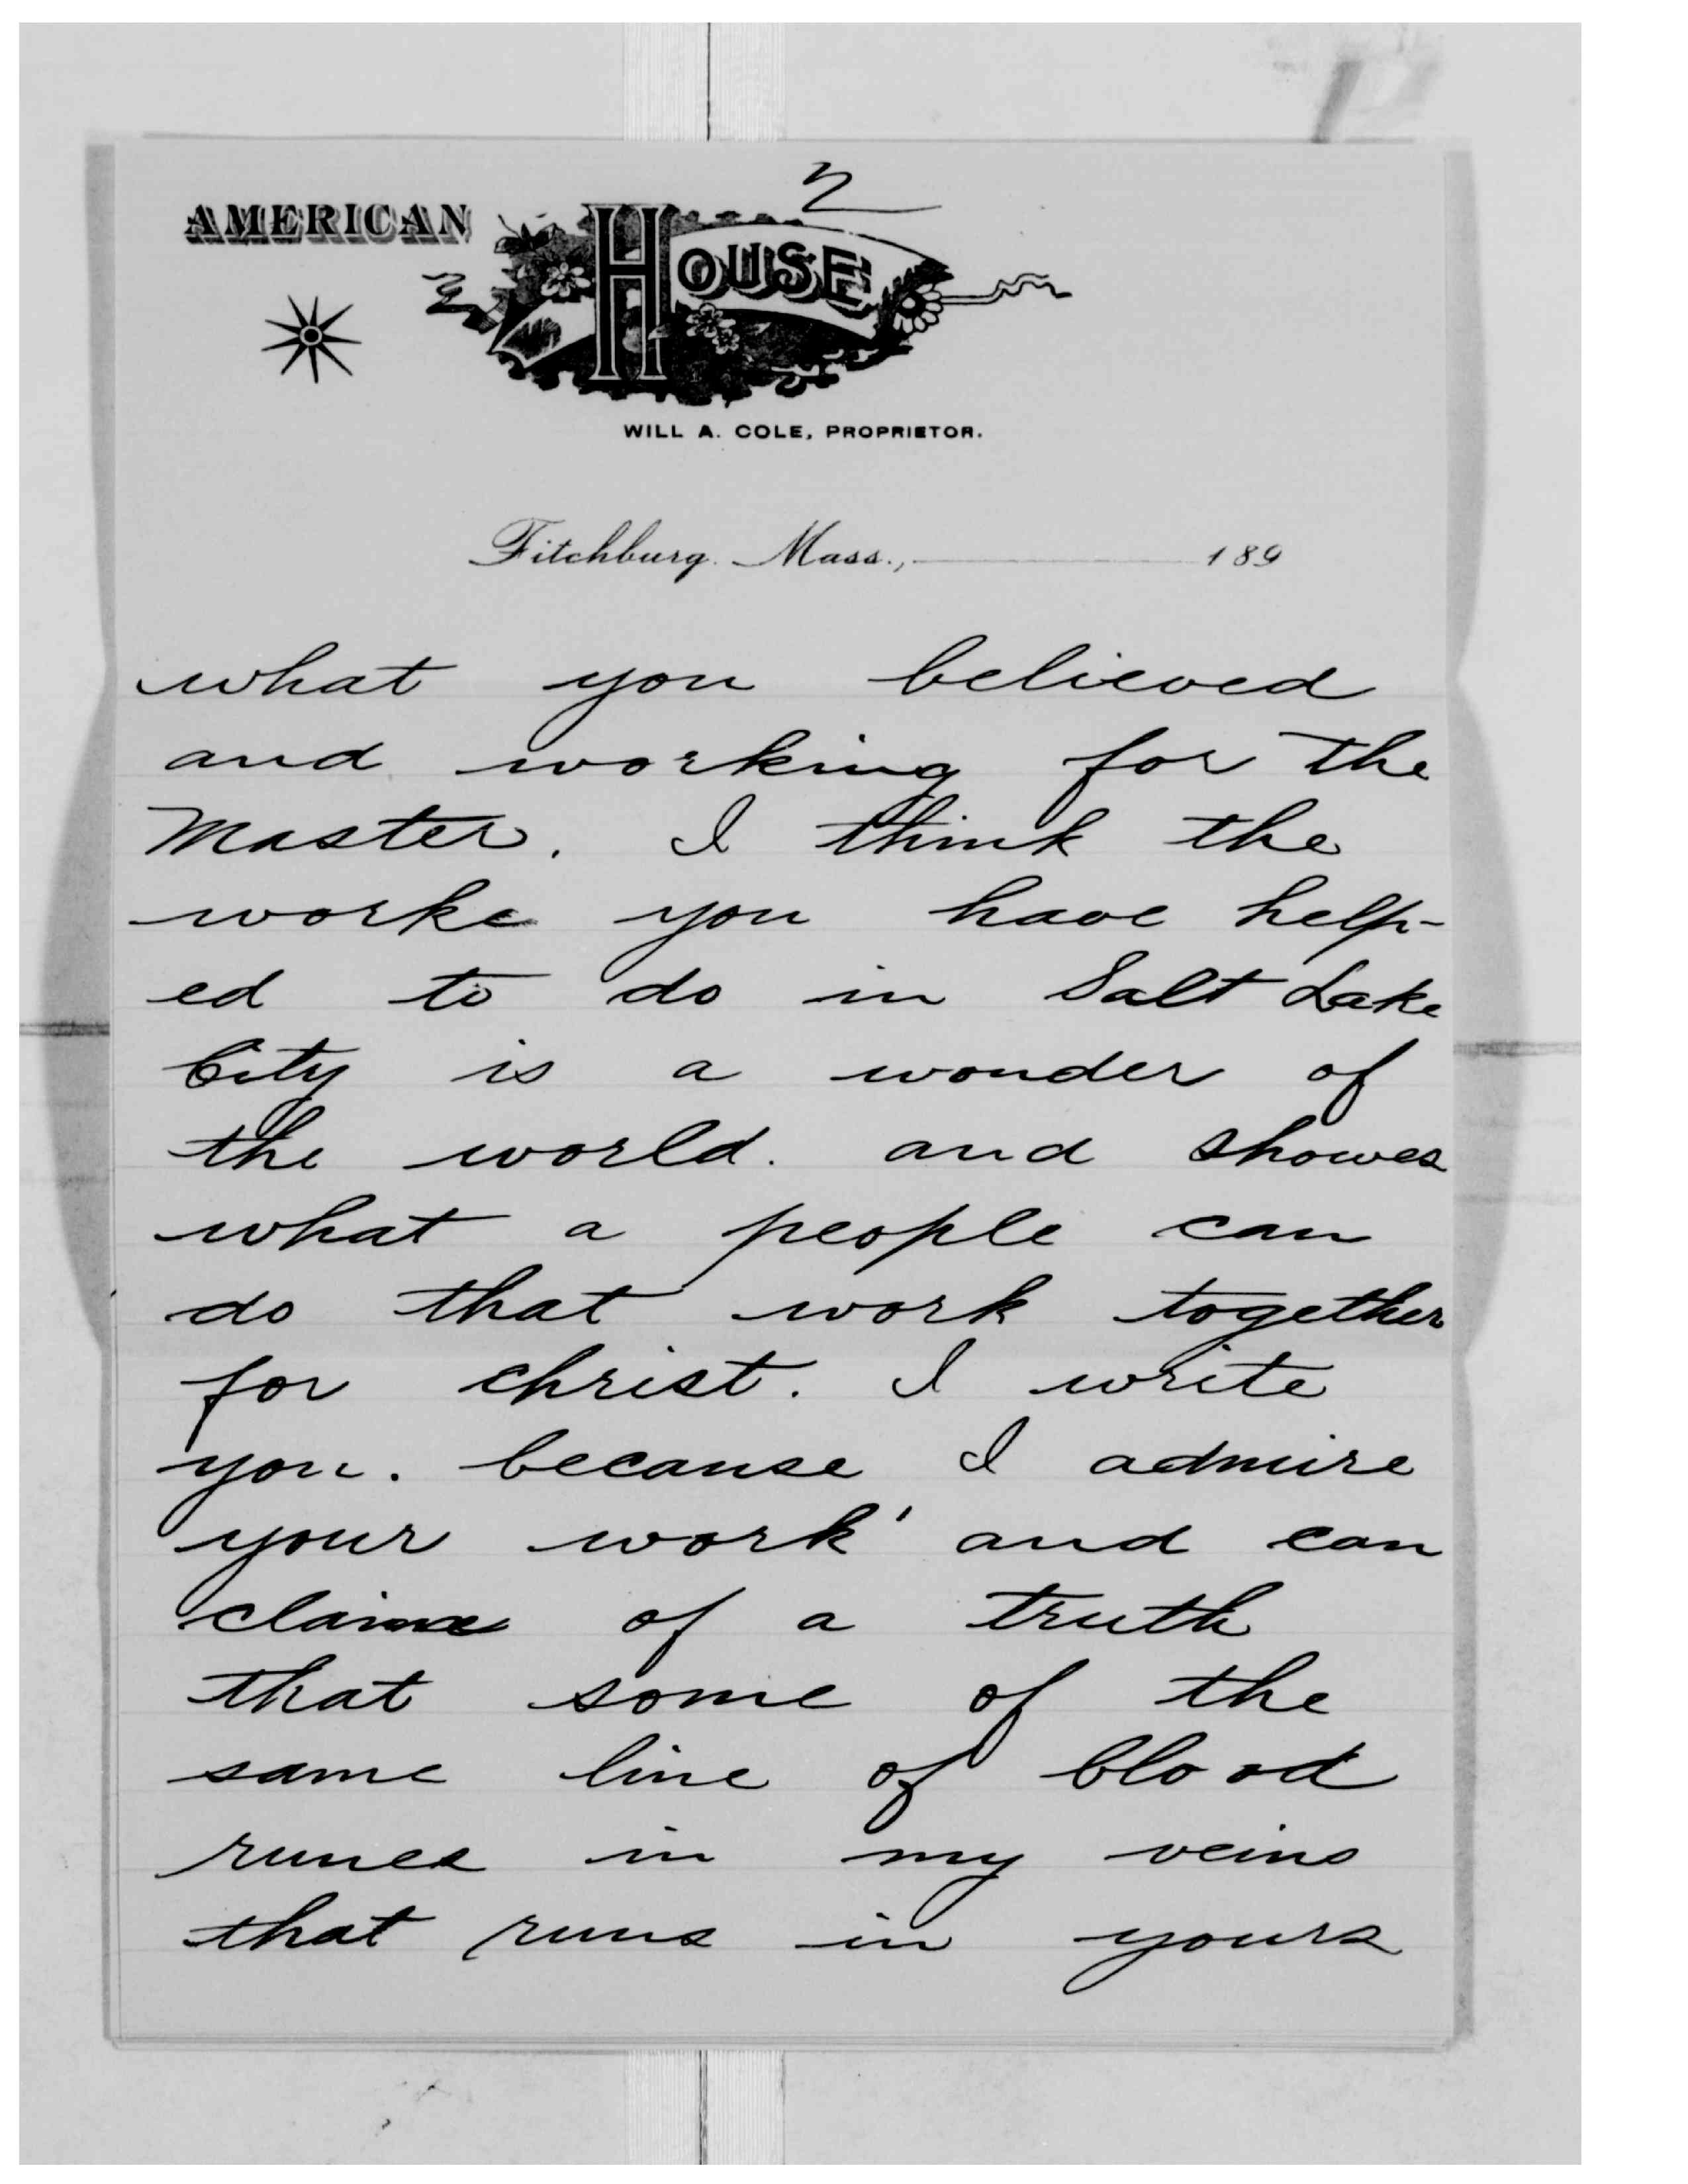 2
AMERICAN HOUSE
WILL A. COLE, PROPRIETOR.
Fitchburg. Mass., 189
what you believed
and working for the
Master. I think the
worke you have help-
ed to do in Salt Lake
City is a wonder of
the world. and showes
what a people can
do that work together
for christ. I write
you. because I admire
your work' and can
claime of a truth
that some of the
same line of blood
runes in my veins
that runs in yours